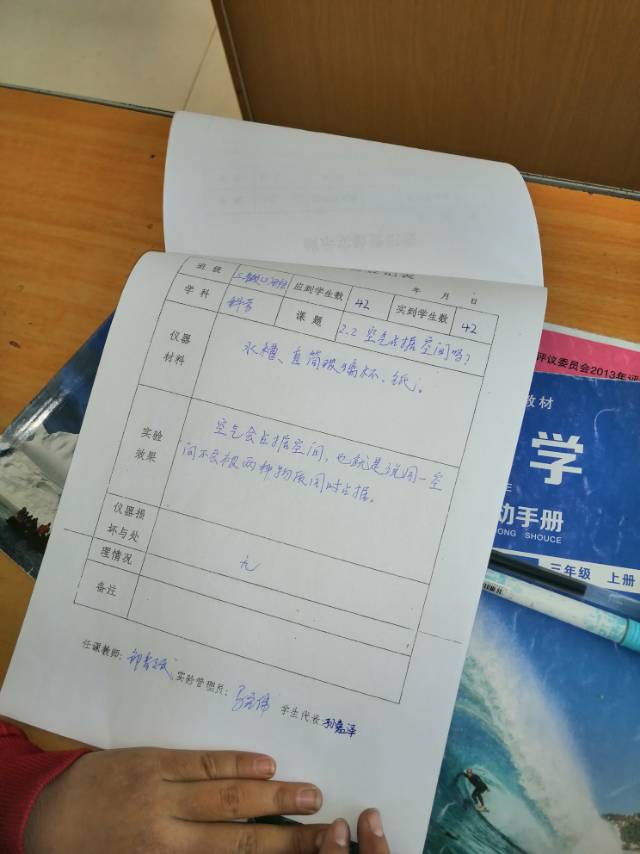 年 月 日
班级 应到学生数 42 实到学生数 42
学科 科学 课题 2.2 空气占据空间吗?
仪器
材料
水槽、直筒玻璃杯、纸。
实验
效果
空气会占据空间,也就是说同一空
间不会被两种物质同时占据。
仪器损
坏与处
理情况
九
备注
任课教师: 实验管理员: 学生代表: 孙嘉泽
评议委员会2013年评
教材
学
动手册
DONG SHOUCE
三年级 上册